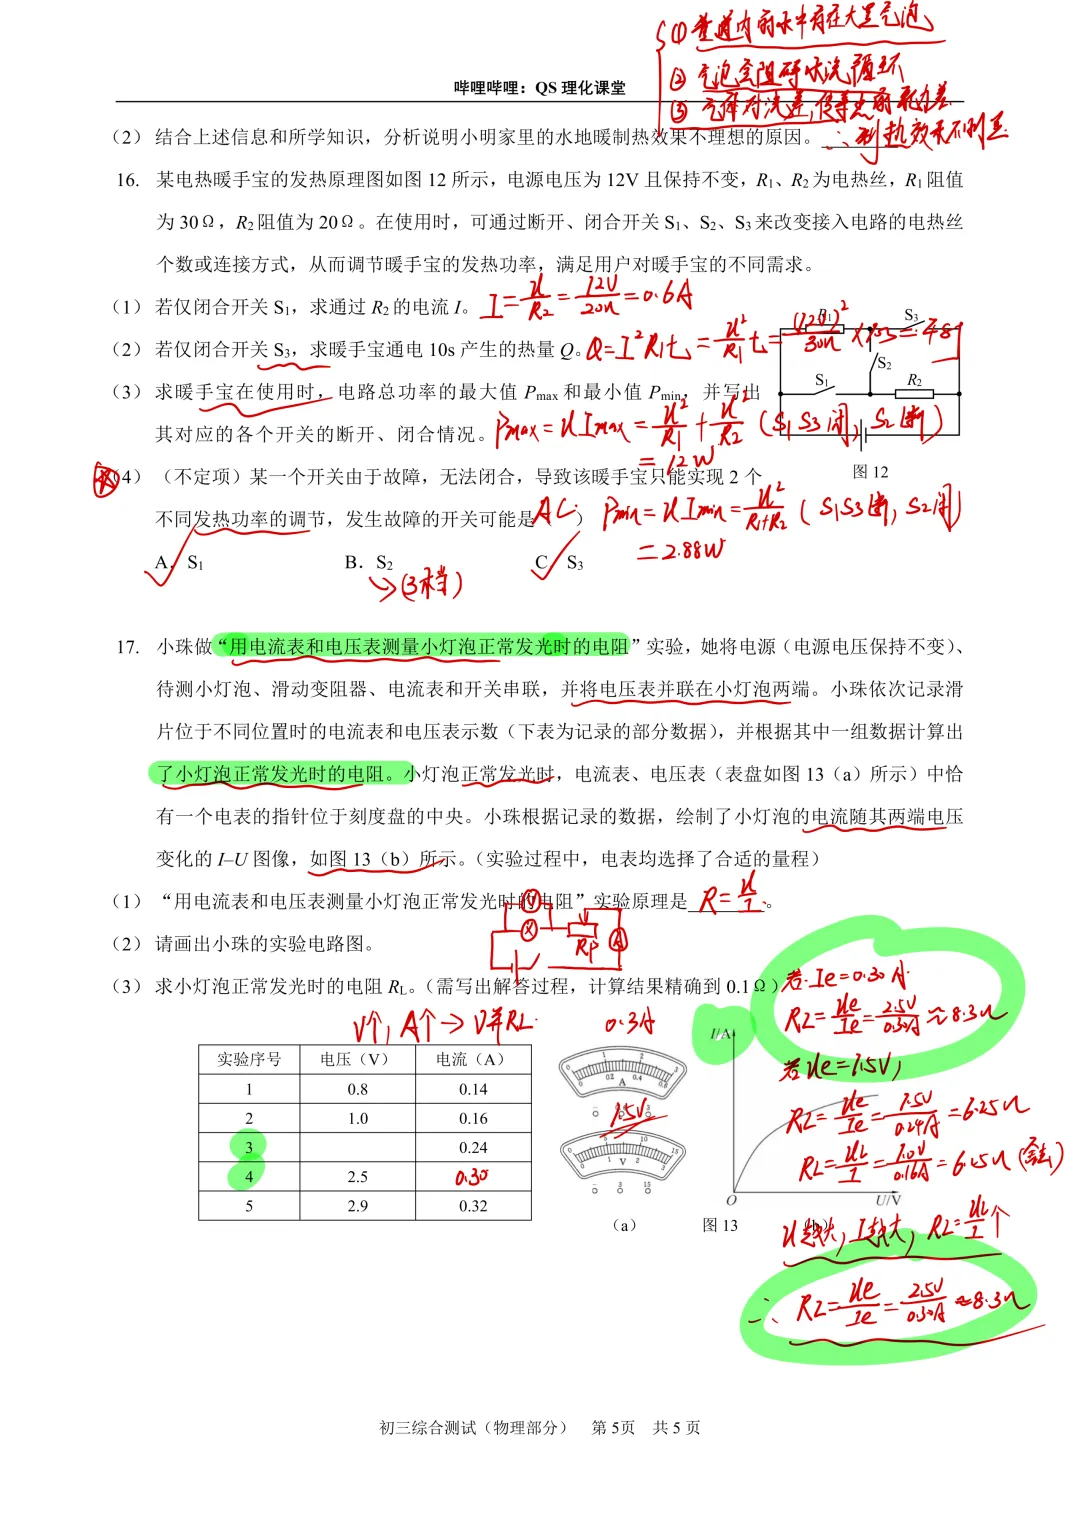 {① 管道内的水中存在大量气泡
② 气泡会阻碍水流循环
③ 气体对流差,传热的能力差
∴制热效果不明显
哔哩哔哩：QS 理化课堂
（2） 结合上述信息和所学知识，分析说明小明家里的水地暖制热效果不理想的原因。
16. 某电热暖手宝的发热原理图如图 12 所示，电源电压为 12V 且保持不变，R1、R2 为电热丝，R1 阻值
为 30Ω，R2 阻值为 20Ω。在使用时，可通过断开、闭合开关 S1、S2、S3 来改变接入电路的电热丝
个数或连接方式，从而调节暖手宝的发热功率，满足用户对暖手宝的不同需求。
（1） 若仅闭合开关 S1，求通过 R2 的电流 I。 I=U/R2=12V/20Ω=0.6A
（2） 若仅闭合开关 S3，求暖手宝通电 10s 产生的热量 Q。 Q=I²R1t=U²/R1 t=(12V)²/30Ω×10s=48J
（3） 求暖手宝在使用时，电路总功率的最大值 Pmax 和最小值 Pmin，并写出
其对应的各个开关的断开、闭合情况。 Pmax=UImax=U²/R1+U²/R2 (S1S3闭, S2断)
=12W
R1 S3
S2
S1 R2
图 12
（4） （不定项）某一个开关由于故障，无法闭合，导致该暖手宝只能实现 2 个
不同发热功率的调节，发生故障的开关可能是（ AC ） Pmin=UImin=U²/R1+R2 (S1S3断, S2闭)
=2.88W
A．S1 B．S2 C．S3
→(3档)
17. 小珠做“用电流表和电压表测量小灯泡正常发光时的电阻”实验，她将电源（电源电压保持不变）、
待测小灯泡、滑动变阻器、电流表和开关串联，并将电压表并联在小灯泡两端。小珠依次记录滑
片位于不同位置时的电流表和电压表示数（下表为记录的部分数据），并根据其中一组数据计算出
了小灯泡正常发光时的电阻。小灯泡正常发光时，电流表、电压表（表盘如图 13（a）所示）中恰
有一个电表的指针位于刻度盘的中央。小珠根据记录的数据，绘制了小灯泡的电流随其两端电压
变化的 I–U 图像，如图 13（b）所示。（实验过程中，电表均选择了合适的量程）
（1） “用电流表和电压表测量小灯泡正常发光时的电阻”实验原理是 R=U/I 。
（2） 请画出小珠的实验电路图。
V A RP
（3） 求小灯泡正常发光时的电阻 RL。（需写出解答过程，计算结果精确到 0.1Ω）
若Ie=0.30A
RL=Ue/Ie=2.5V/0.30A≈8.3Ω
V↑, A↑→V并RL.
实验序号 电压（V） 电流（A）
1 0.8 0.14
2 1.0 0.16
3 0.24
4 2.5 0.30
5 2.9 0.32
0.3A
0 1 2 3
0 0.2 0.4 0.6
A
1.5V
0 5 10 15
0 1 2 3
V
− 3 15
（a）
图 13
I/A
O U/V
（b）
若Ue=1.5V,
RL=Ue/Ie=1.5V/0.24A=6.25Ω
RL=UL/I=1.0V/0.16A=6.25Ω (舍去)
U越大, I越大, RL=UL/I↑
∴ RL=Ue/Ie=2.5V/0.30A≈8.3Ω
初三综合测试（物理部分） 第 5页 共 5 页